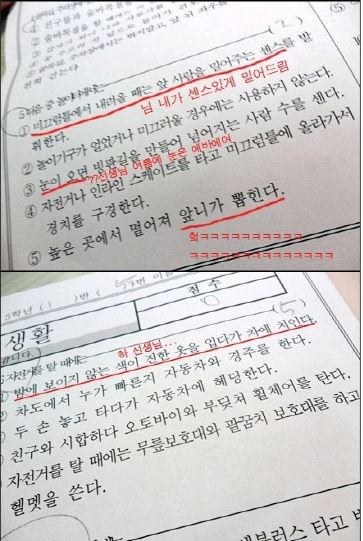 ⑤
① 친구들과 줄바꿈질을
② 줄바꿈질을 할 때에는
(2)
5 다음 중 놀이
① 미끄럼틀에서 내려올 때는 앞 사람을 밀어주는 센스를 발
휘한다.
님 내가 센스있게 밀어드림
② 놀이기구가 얼었거나 미끄러울 경우에는 사용하지 않는다.
③ 눈이 오면 빙판길을 만들어 넘어지는 사람 수를 센다.
??선생님 여름에 눈은 에바에여
④ 자전거나 인라인 스케이트를 타고 미끄럼틀에 올라가서
경치를 구경한다.
⑤ 높은 곳에서 떨어져 앞니가 뽑힌다.
헠ㅋㅋㅋㅋㅋㅋㅋㅋㅋㅋ
ㅋㅋㅋㅋㅋㅋㅋㅋㅋㅋㅋㅋㅋㅋ
5학년 ( ) 반 ( 5 번 이름
생활
점수
(5)
자전거를 탈 때에는
하 선생님...
① 밤에 보이지 않는 색이 진한 옷을 입다가 차에 치인다.
② 차도에서 누가 빠른지 자동차와 경주를 한다.
③ 두 손 놓고 타다가 자동차에 헤딩한다.
④ 친구와 시합하다 오토바이와 부딪쳐 휠체어를 탄다.
자전거를 탈 때에는 무릎보호대와 팔꿈치 보호대를 하고
헬멧을 쓴다.
타고